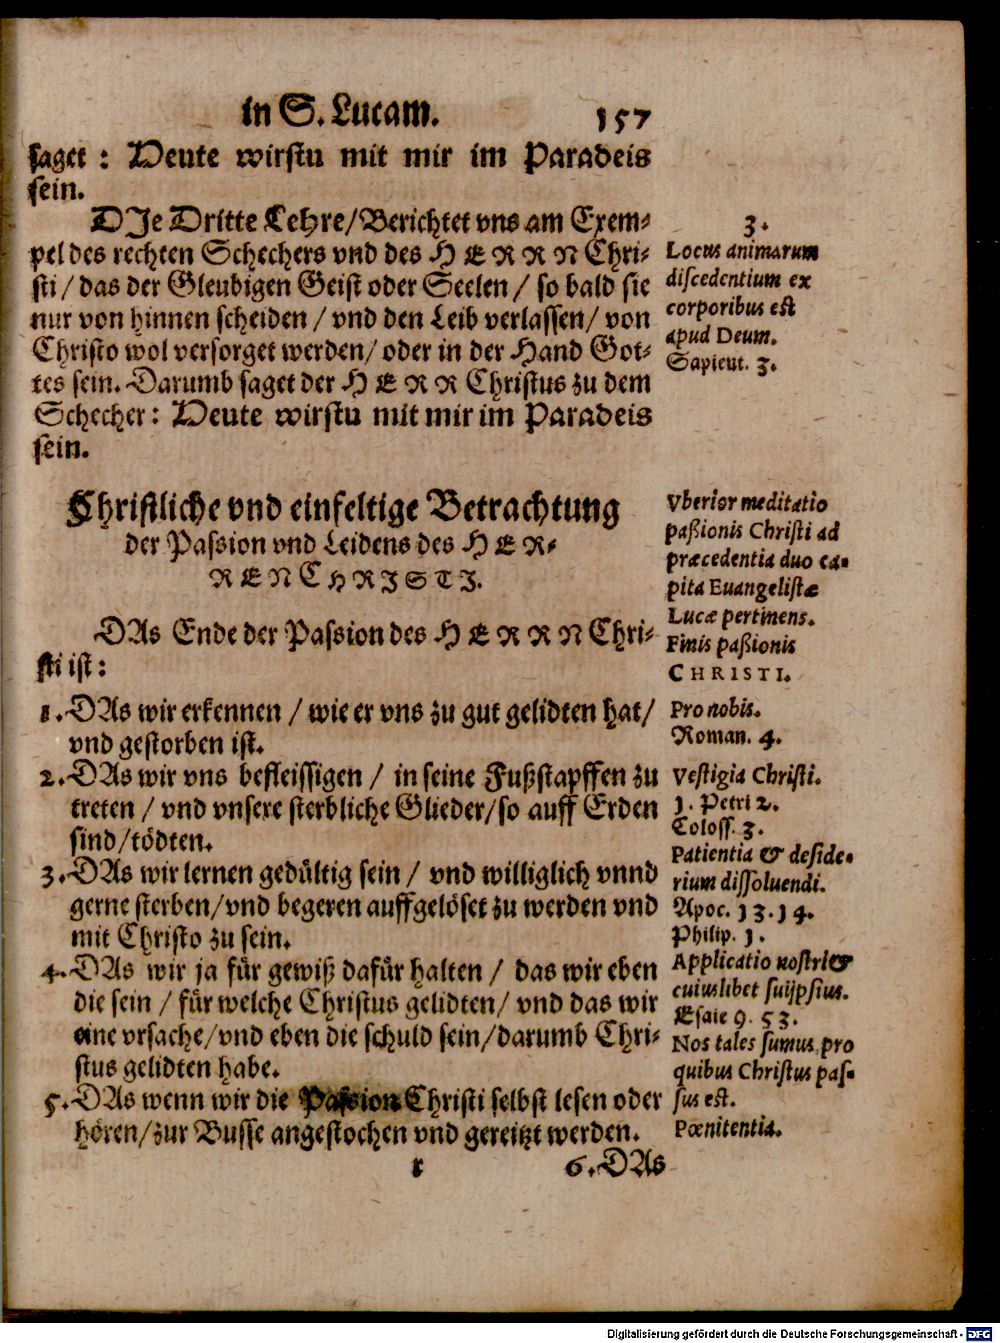 in S. Lucam. 157
saget : Heute wirstu mit mir im Paradeis
sein.
DJe Dritte Lehre/Berichtet vns am Exem-
pel des rechten Schechers vnd des HERRN Chri-
sti / das der Gleubigen Geist oder Seelen / so bald sie
nur von hinnen scheiden / vnd den Leib verlassen/ von
Christo wol versorget werden/ oder in der Hand Got-
tes sein. Darumb saget der HERR Christus zu dem
Schecher: Heute wirstu mit mir im Paradeis
sein.
3.
Locus animarum
discedentium ex
corporibus est
apud Deum.
Sapient. 3.
Christliche vnd einfeltige Betrachtung
der Passion vnd Leidens des HER-
REN CHRJSTJ.
Vberior meditatio
paßionis Christi ad
præcedentia duo ca-
pita Euangelistæ
Lucæ pertinens.
DAs Ende der Passion des HERRN Chri-
sti ist:
Finis paßionis
CHRISTI.
1. DAs wir erkennen / wie er vns zu gut gelidten hat/
vnd gestorben ist.
Pro nobis.
Roman. 4.
2. DAs wir vns befleissigen / in seine Fußstapffen zu
treten / vnd vnsere sterbliche Glieder/so auff Erden
sind/tödten.
Vestigia Christi.
1. Petri 2.
Coloss. 3.
3. DAs wir lernen gedültig sein / vnd williglich vnnd
gerne sterben/vnd begeren auffgelöset zu werden vnd
mit Christo zu sein.
Patientia & deside-
rium dissoluendi.
Apoc. 13.14.
Philip. 1.
4. DAs wir ja für gewiß dafür halten / das wir eben
die sein / für welche Christus gelidten/ vnd das wir
eine vrsache/vnd eben die schuld sein/darumb Chri-
stus gelidten habe.
Applicatio nostri &
cuiuslibet suiipsius.
Esaie 9. 53.
Nos tales sumus, pro
quibus Christus pas-
sus est.
5. DAs wenn wir die Passion Christi selbst lesen oder
hören/zur Busse angestochen vnd gereitzt werden.
Pœnitentia.
r 6. DAs
Digitalisierung gefördert durch die Deutsche Forschungsgemeinschaft - DFG